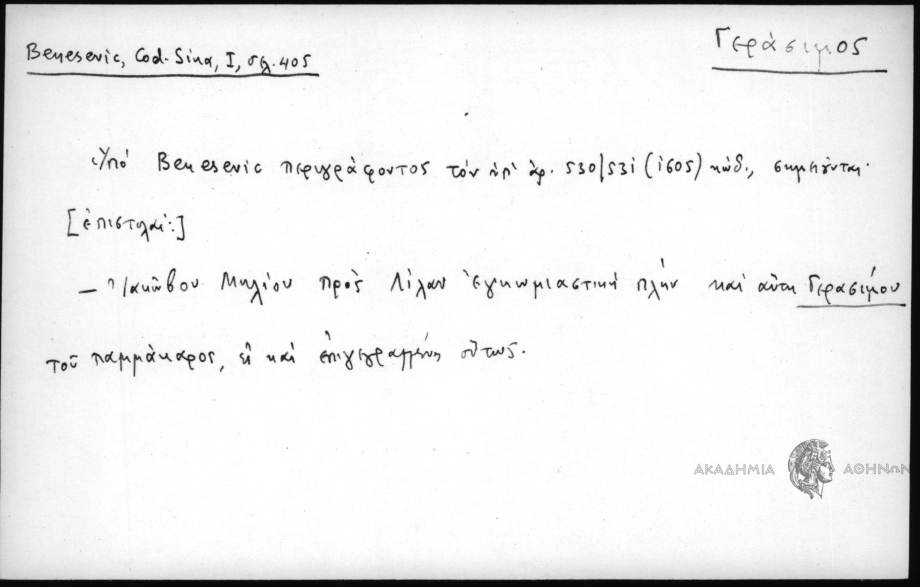 Benesevic, Cod. Sina, I, σελ. 405
Γεράσιμος
Ὑπό Benesevic περιγράφοντος τόν ὑπ' ἀρ. 530/531 (1605) κώδ., σημειοῦνται·
[ἐπιστολαί:]
— Ἰακώβου Μηλίου πρός Λίλαν ἐγκωμιαστική πλήν καί αὕτη Γερασίμου
τοῦ παμμάκαρος, εἰ καί ἐπιγεγραμμένη οὕτως.
ΑΚΑΔΗΜΙΑ ΑΘΗΝΩΝ